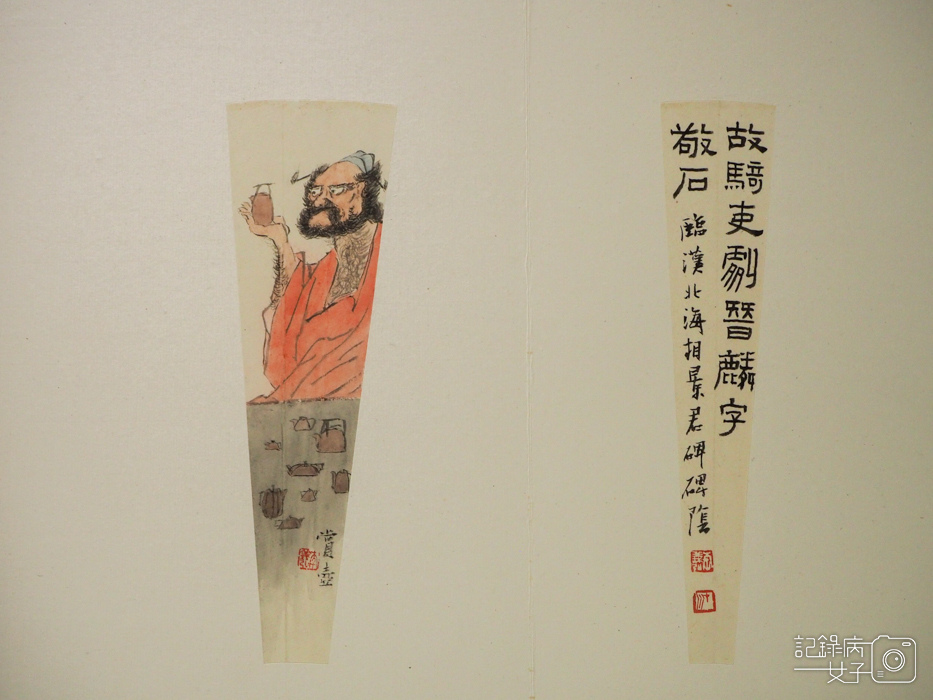 賞壺
故騎吏劇晉麟字
敬石 臨漢北海相景君碑碑陰
記錄病
女子